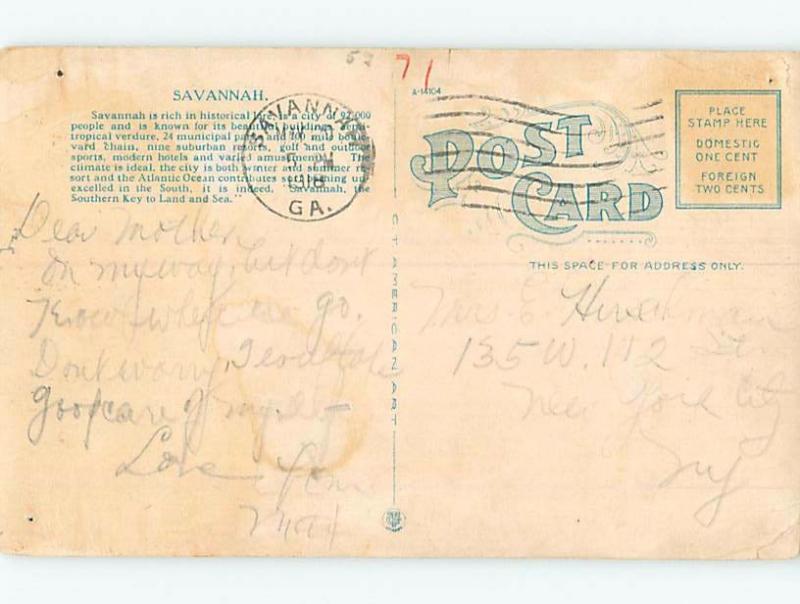 52 71
SAVANNAH.
Savannah is rich in historical lore, is a city of 92,000
people and is known for its beautiful buildings, semi-
tropical verdure, 24 municipal parks and 100 mile boule-
vard chain, nine suburban resorts, golf and outdoor
sports, modern hotels and varied amusements. The
climate is ideal, the city is both winter and summer re-
sort and the Atlantic Ocean contributes surf bathing un-
excelled in the South, it is indeed, "Savannah, the
Southern Key to Land and Sea."
SAVANNAH
GA.
Dear mother
On my way, but dont
Know where we go.
Dont worry, I will take
good care of myself
Love from
C.T. AMERICAN ART
A-14104
POST
CARD
PLACE
STAMP HERE
DOMESTIC
ONE CENT
FOREIGN
TWO CENTS
THIS SPACE FOR ADDRESS ONLY.
Mrs E.
135 W. 112
New York City
N.Y.